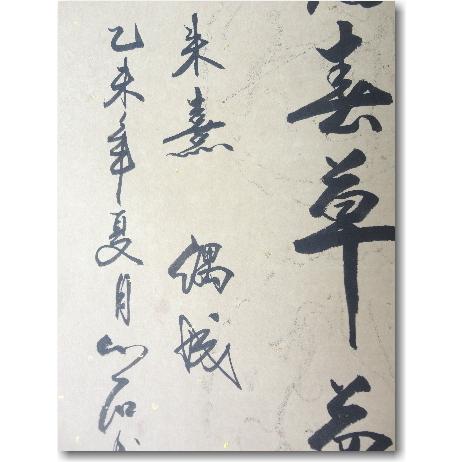 春草
朱熹 偶成
乙未年夏月石